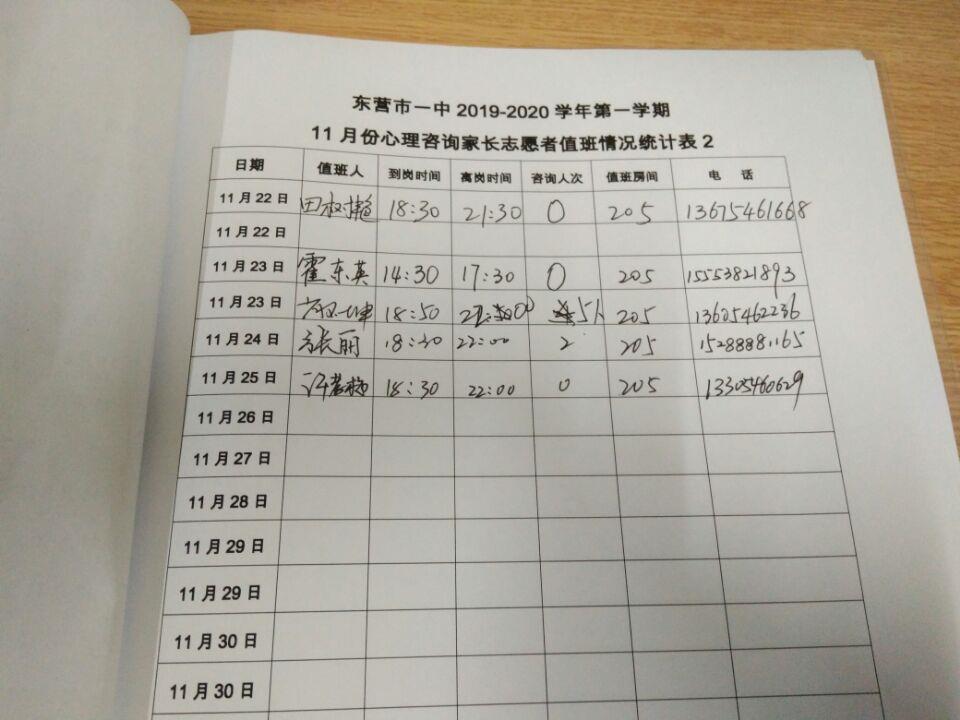 东营市一中 2019-2020 学年第一学期
11 月份心理咨询家长志愿者值班情况统计表 2
日期 值班人 到岗时间 离岗时间 咨询人次 值班房间 电 话
11 月 22 日 田 18:30 21:30 0 205 13675461668
11 月 22 日
11 月 23 日 霍东英 14:30 17:30 0 205 15553821893
11 月 23 日 18:50 205 13605462236
11 月 24 日 张丽 18:30 22:00 2 205 15288881165
11 月 25 日 许 18:30 22:00 0 205 13305460629
11 月 26 日
11 月 27 日
11 月 28 日
11 月 29 日
11 月 29 日
11 月 30 日
11 月 30 日